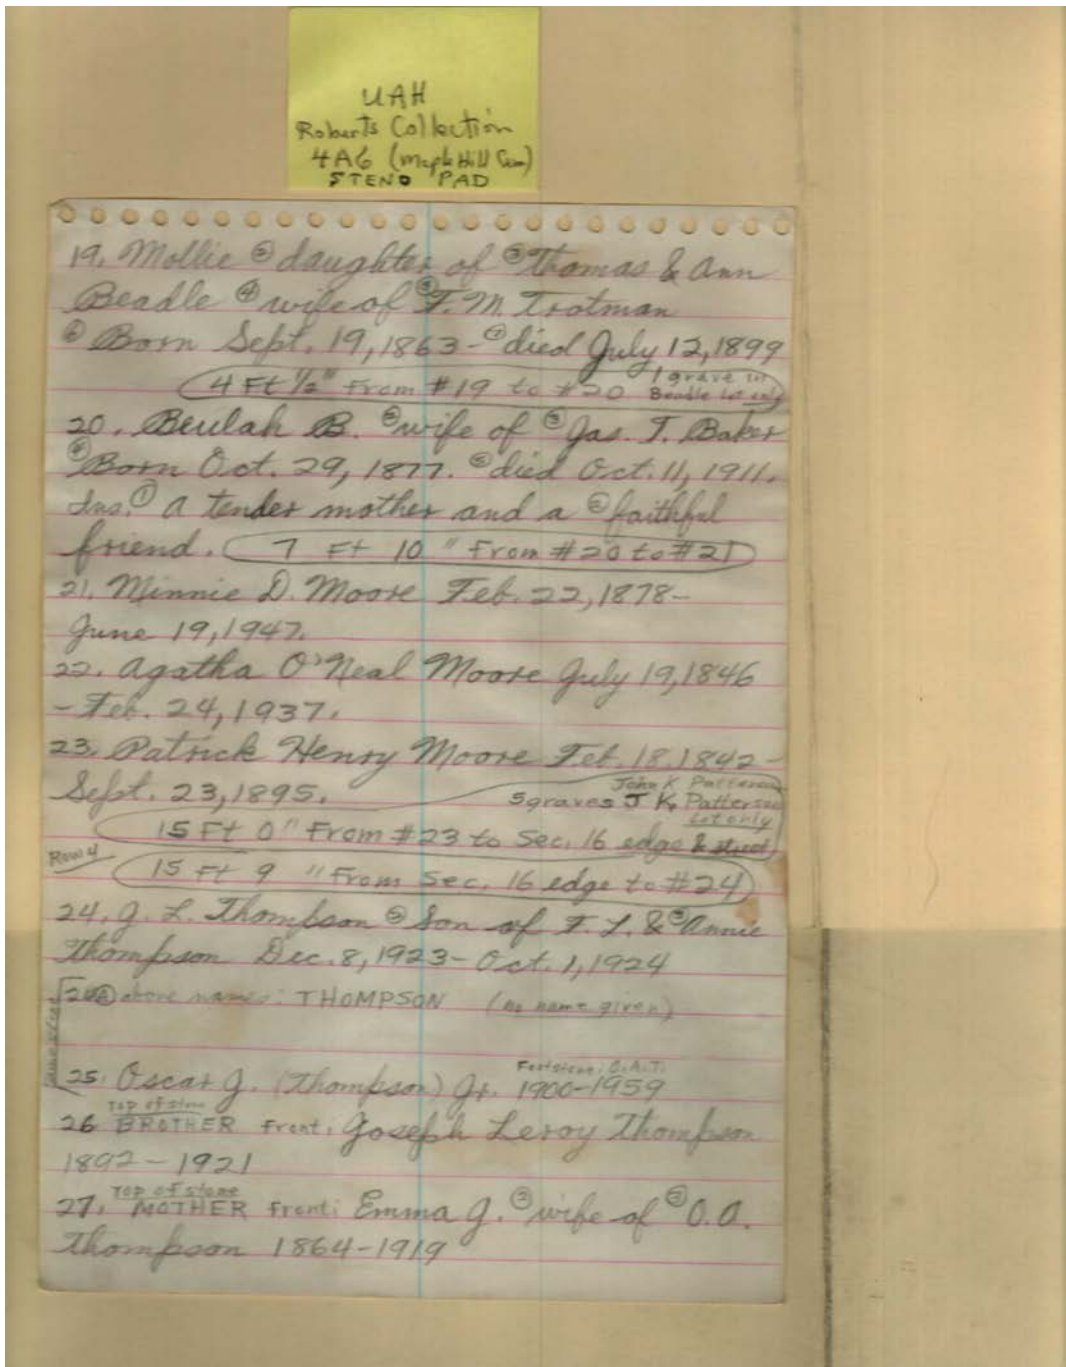 UAH
Roberts Collection
4A6 (Maple Hill Cem)
STENO PAD
19. Mollie ② daughter of ③ Thomas & Ann
Beadle ④ wife of ⑤ F. M. Trotman
⑥ Born Sept. 19, 1863 - ⑦ died July 12, 1899
4 Ft ½" From #19 to #20 1 grave in
Beadle Lot only
20. Beulah B. ② wife of ③ Jas. T. Baker
④ Born Oct. 29, 1877. ⑤ died Oct. 11, 1911.
Ins. ① A tender mother and a ② faithful
friend. 7 Ft 10" From #20 to #21
21. Minnie D. Moore Feb. 22, 1878-
June 19, 1947.
22. Agatha O'Neal Moore July 19, 1846
- Feb. 24, 1937.
23. Patrick Henry Moore Feb. 18. 1842 -
Sept. 23, 1895.
John K Patterson
5 graves J K. Patterson
Lot only
15 Ft 0" From #23 to Sec. 16 edge & street
Row 4
15 Ft 9 " From Sec. 16 edge to #24
24. J. L. Thompson ② Son of F. L. & ③ Annie
Thompson Dec. 8, 1923 - Oct. 1, 1924
24Ⓐ above names: THOMPSON (no name given)
Footstone: O.A.T.
25. Oscar J. (Thompson) Jr. 1900-1959
Top of stone
26 BROTHER Front: Joseph Leroy Thompson
1892 - 1921
Top of stone
27. MOTHER Front: Emma J. ② wife of ③ O.A.
Thompson 1864-1919